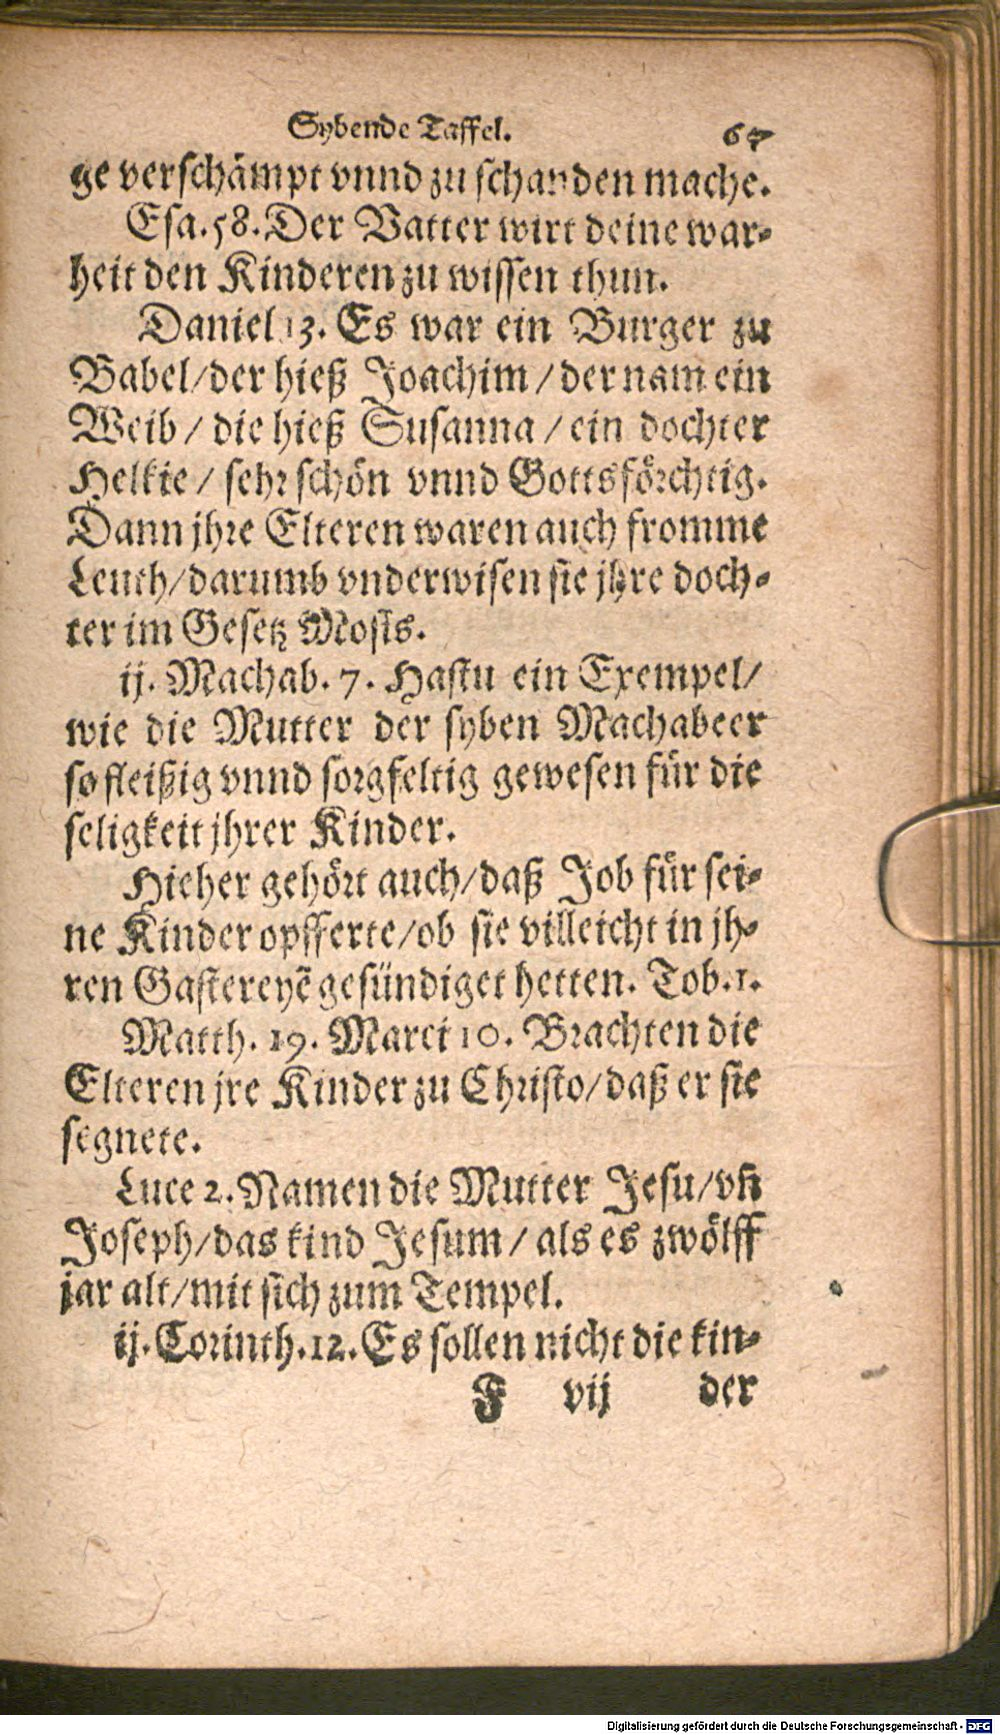 Sybende Taffel. 67
ge verschämpt vnnd zu schanden mache.
Esa. 58. Der Vatter wirt deine war-
heit den Kinderen zu wissen thun.
Daniel 13. Es war ein Burger zu
Babel/ der hieß Joachim/ der nam ein
Weib/ die hieß Susanna/ ein dochter
Helkie/ sehr schön vnnd Gottsförchtig.
Dann jhre Elteren waren auch fromme
Leuth/ darumb vnderwisen sie jhre doch-
ter im Gesetz Mosis.
ij. Machab. 7. Hastu ein Exempel/
wie die Mutter der syben Machabeer
so fleißig vnnd sorgfeltig gewesen für die
seligkeit jhrer Kinder.
Hieher gehört auch/ daß Job für sei-
ne Kinder opfferte/ ob sie villeicht in jh-
ren Gastereyẽ gesündiget hetten. Tob. 1.
Matth. 19. Marci 10. Brachten die
Elteren jre Kinder zu Christo/ daß er sie
segnete.
Luce 2. Namen die Mutter Jesu/ vñ
Joseph/ das kind Jesum/ als es zwölff
jar alt/ mit sich zum Tempel.
ij. Corinth. 12. Es sollen nicht die kin-
F vij der
Digitalisierung gefördert durch die Deutsche Forschungsgemeinschaft - DFG